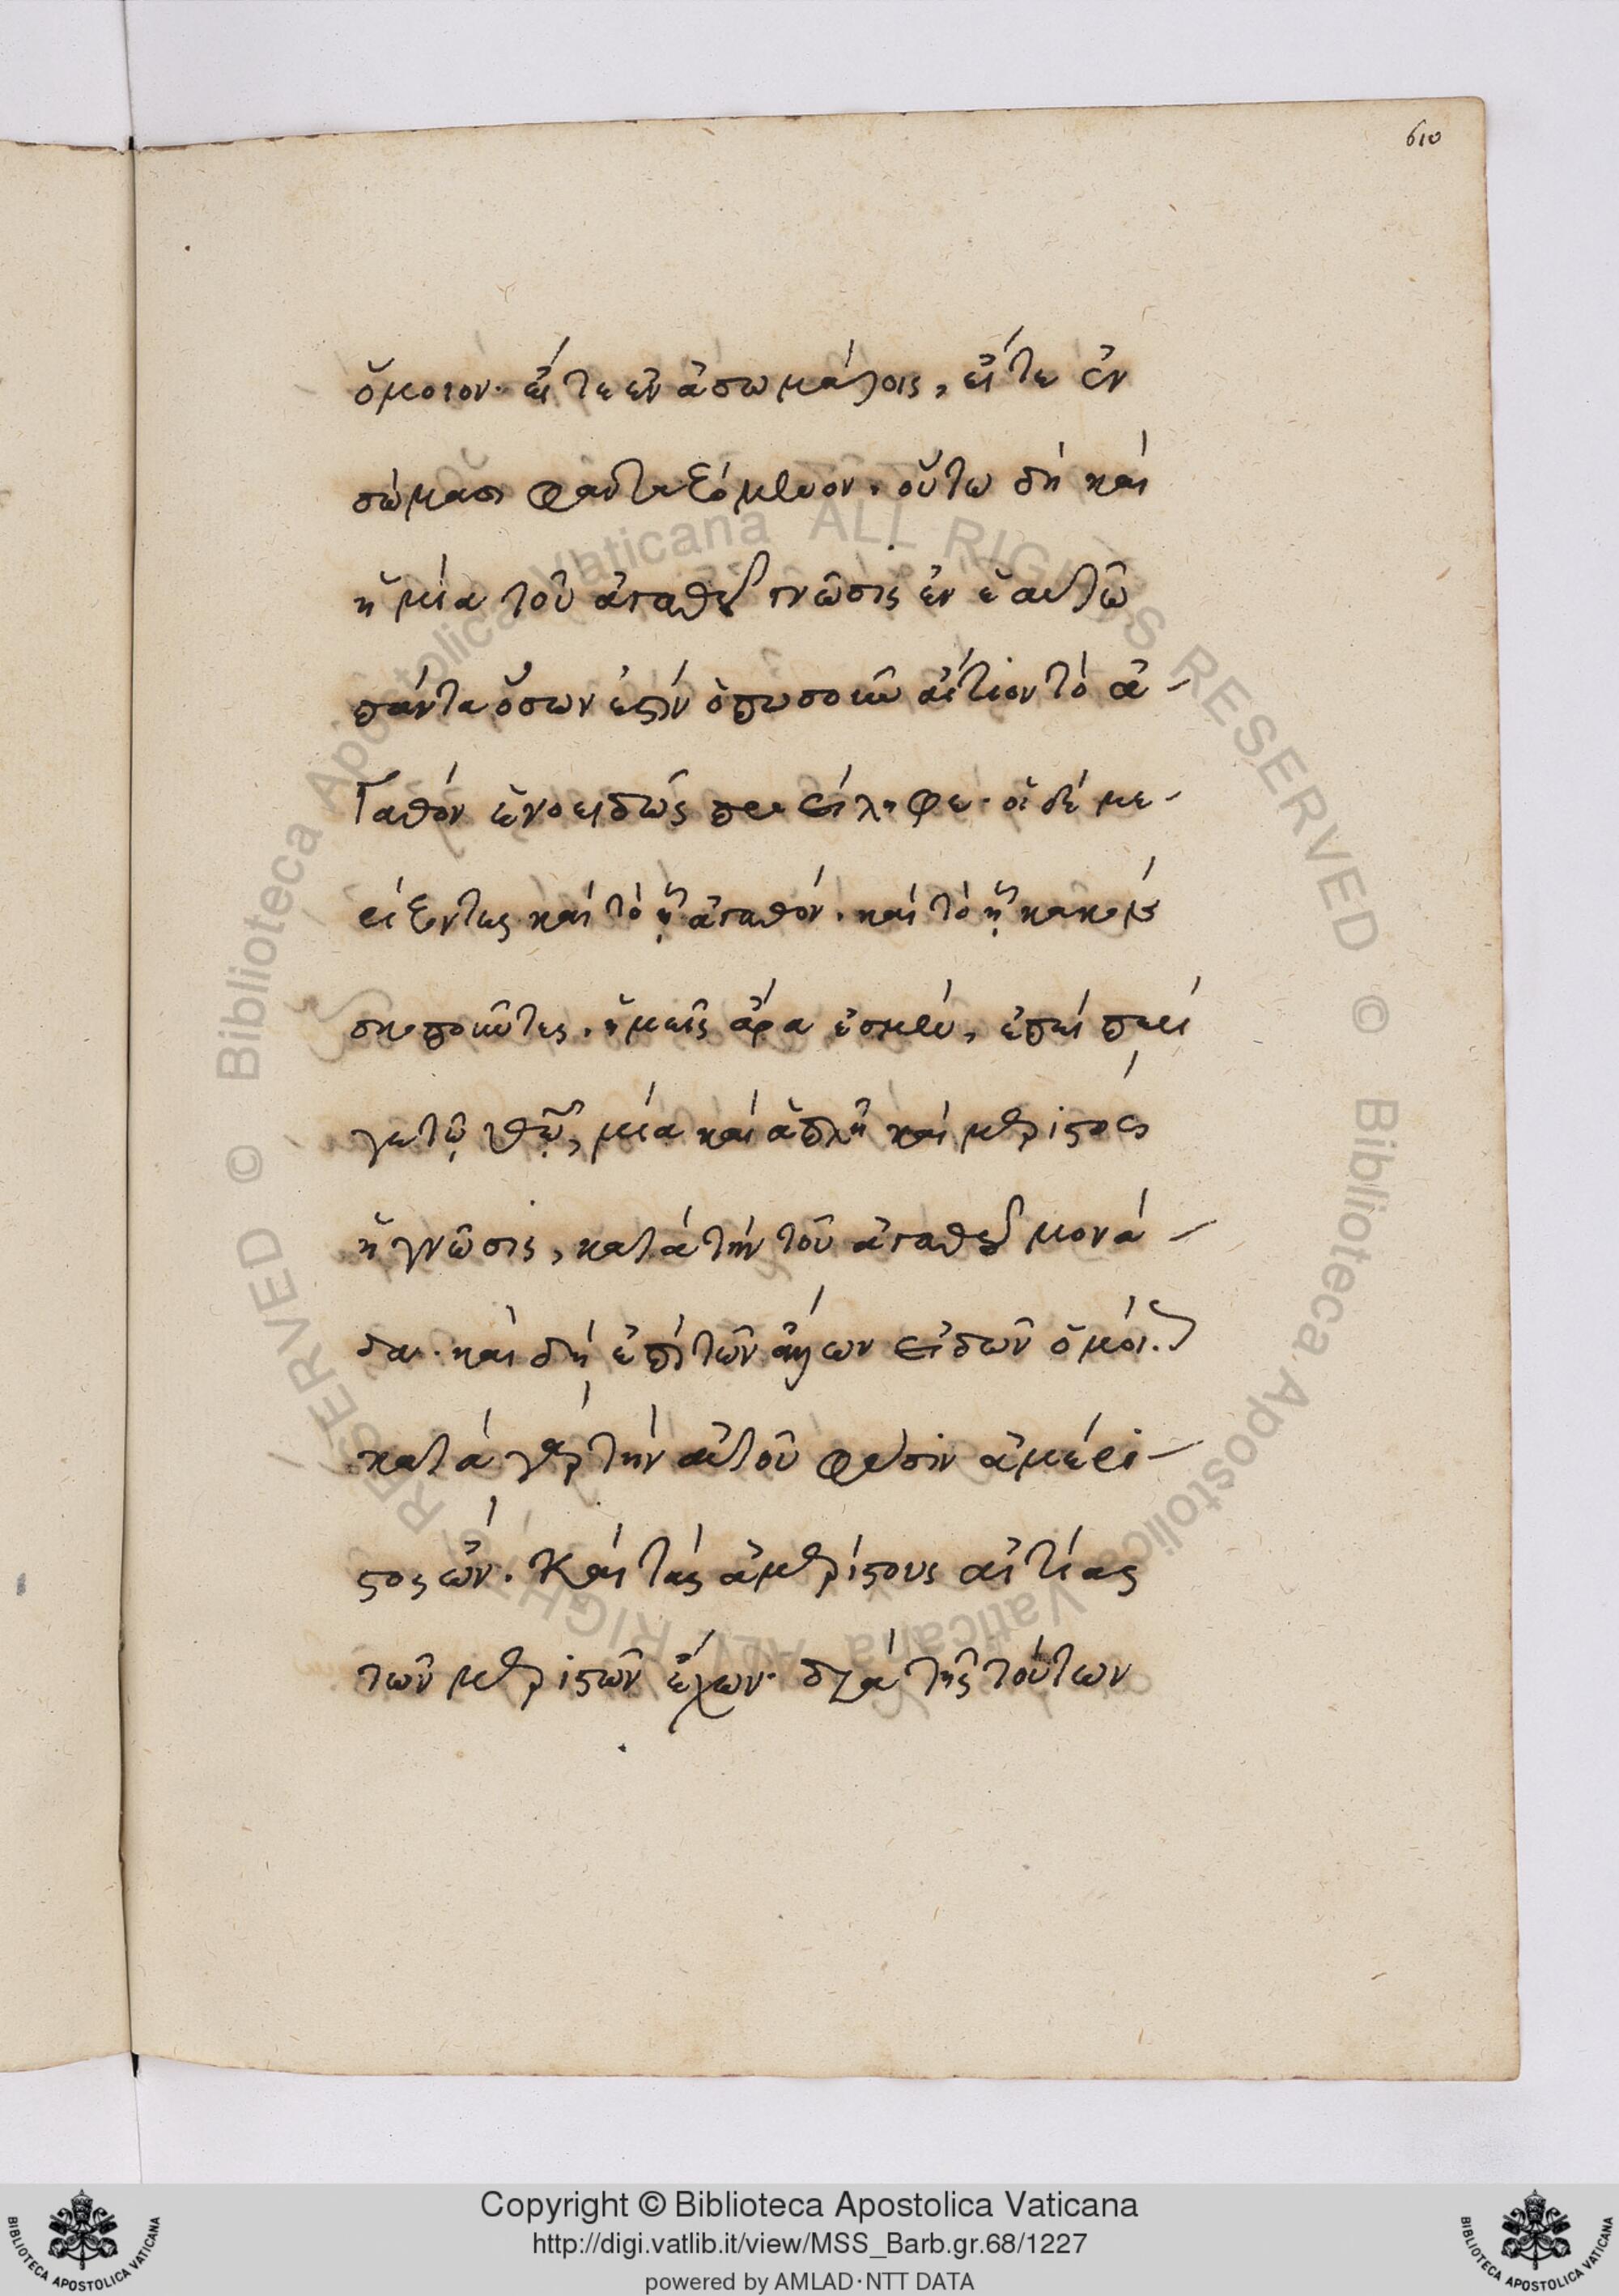 610
ὅμοιον· εἴτε ἐν ἀσωμάτοις, εἴτε ἐν
σώμασι φανταζόμενον· οὕτω δὴ καὶ
ἡ μία τοῦ ἀγαθοῦ γνῶσις ἐν ἑαυτῶ
πάντα ὅσων ἐστὶν ὁπωσοῦν αἴτιον τὸ ἀ-
γαθὸν ἑνοειδῶς προείληφε· οἱ δὲ με-
ρίζοντες καὶ τὸ ᾗ ἀγαθόν· καὶ τὸ ᾗ κακὸν
σκοποῦντες· ἡμεῖς ἄρα ἐσμέν, ἐπεὶ περί
γε τῷ θεῷ, μία καὶ ἁπλῆ καὶ μέριστος
ἡ γνῶσις, κατὰ τὴν τοῦ ἀγαθοῦ μονά-
δα· καὶ δὴ ἐπὶ τῶν ἄλλων εἰδῶν ὁμοί.
κατὰ γὰρ τὴν αὐτοῦ φύσιν ἀμέρι-
στος ὢν. Καὶ τὰς ἀμερίστους αἰτίας
τῶν μεριστῶν ἔχων· διὰ τῆς τούτων
Copyright © Biblioteca Apostolica Vaticana
http://digi.vatlib.it/view/MSS_Barb.gr.68/1227
powered by AMLAD·NTT DATA
BIBLIOTECA APOSTOLICA VATICANA
BIBLIOTECA APOSTOLICA VATICANA
© Biblioteca Apostolica Vaticana ALL RIGHTS RESERVED © Biblioteca Apostolica Vaticana ALL RIGHTS RESERVED